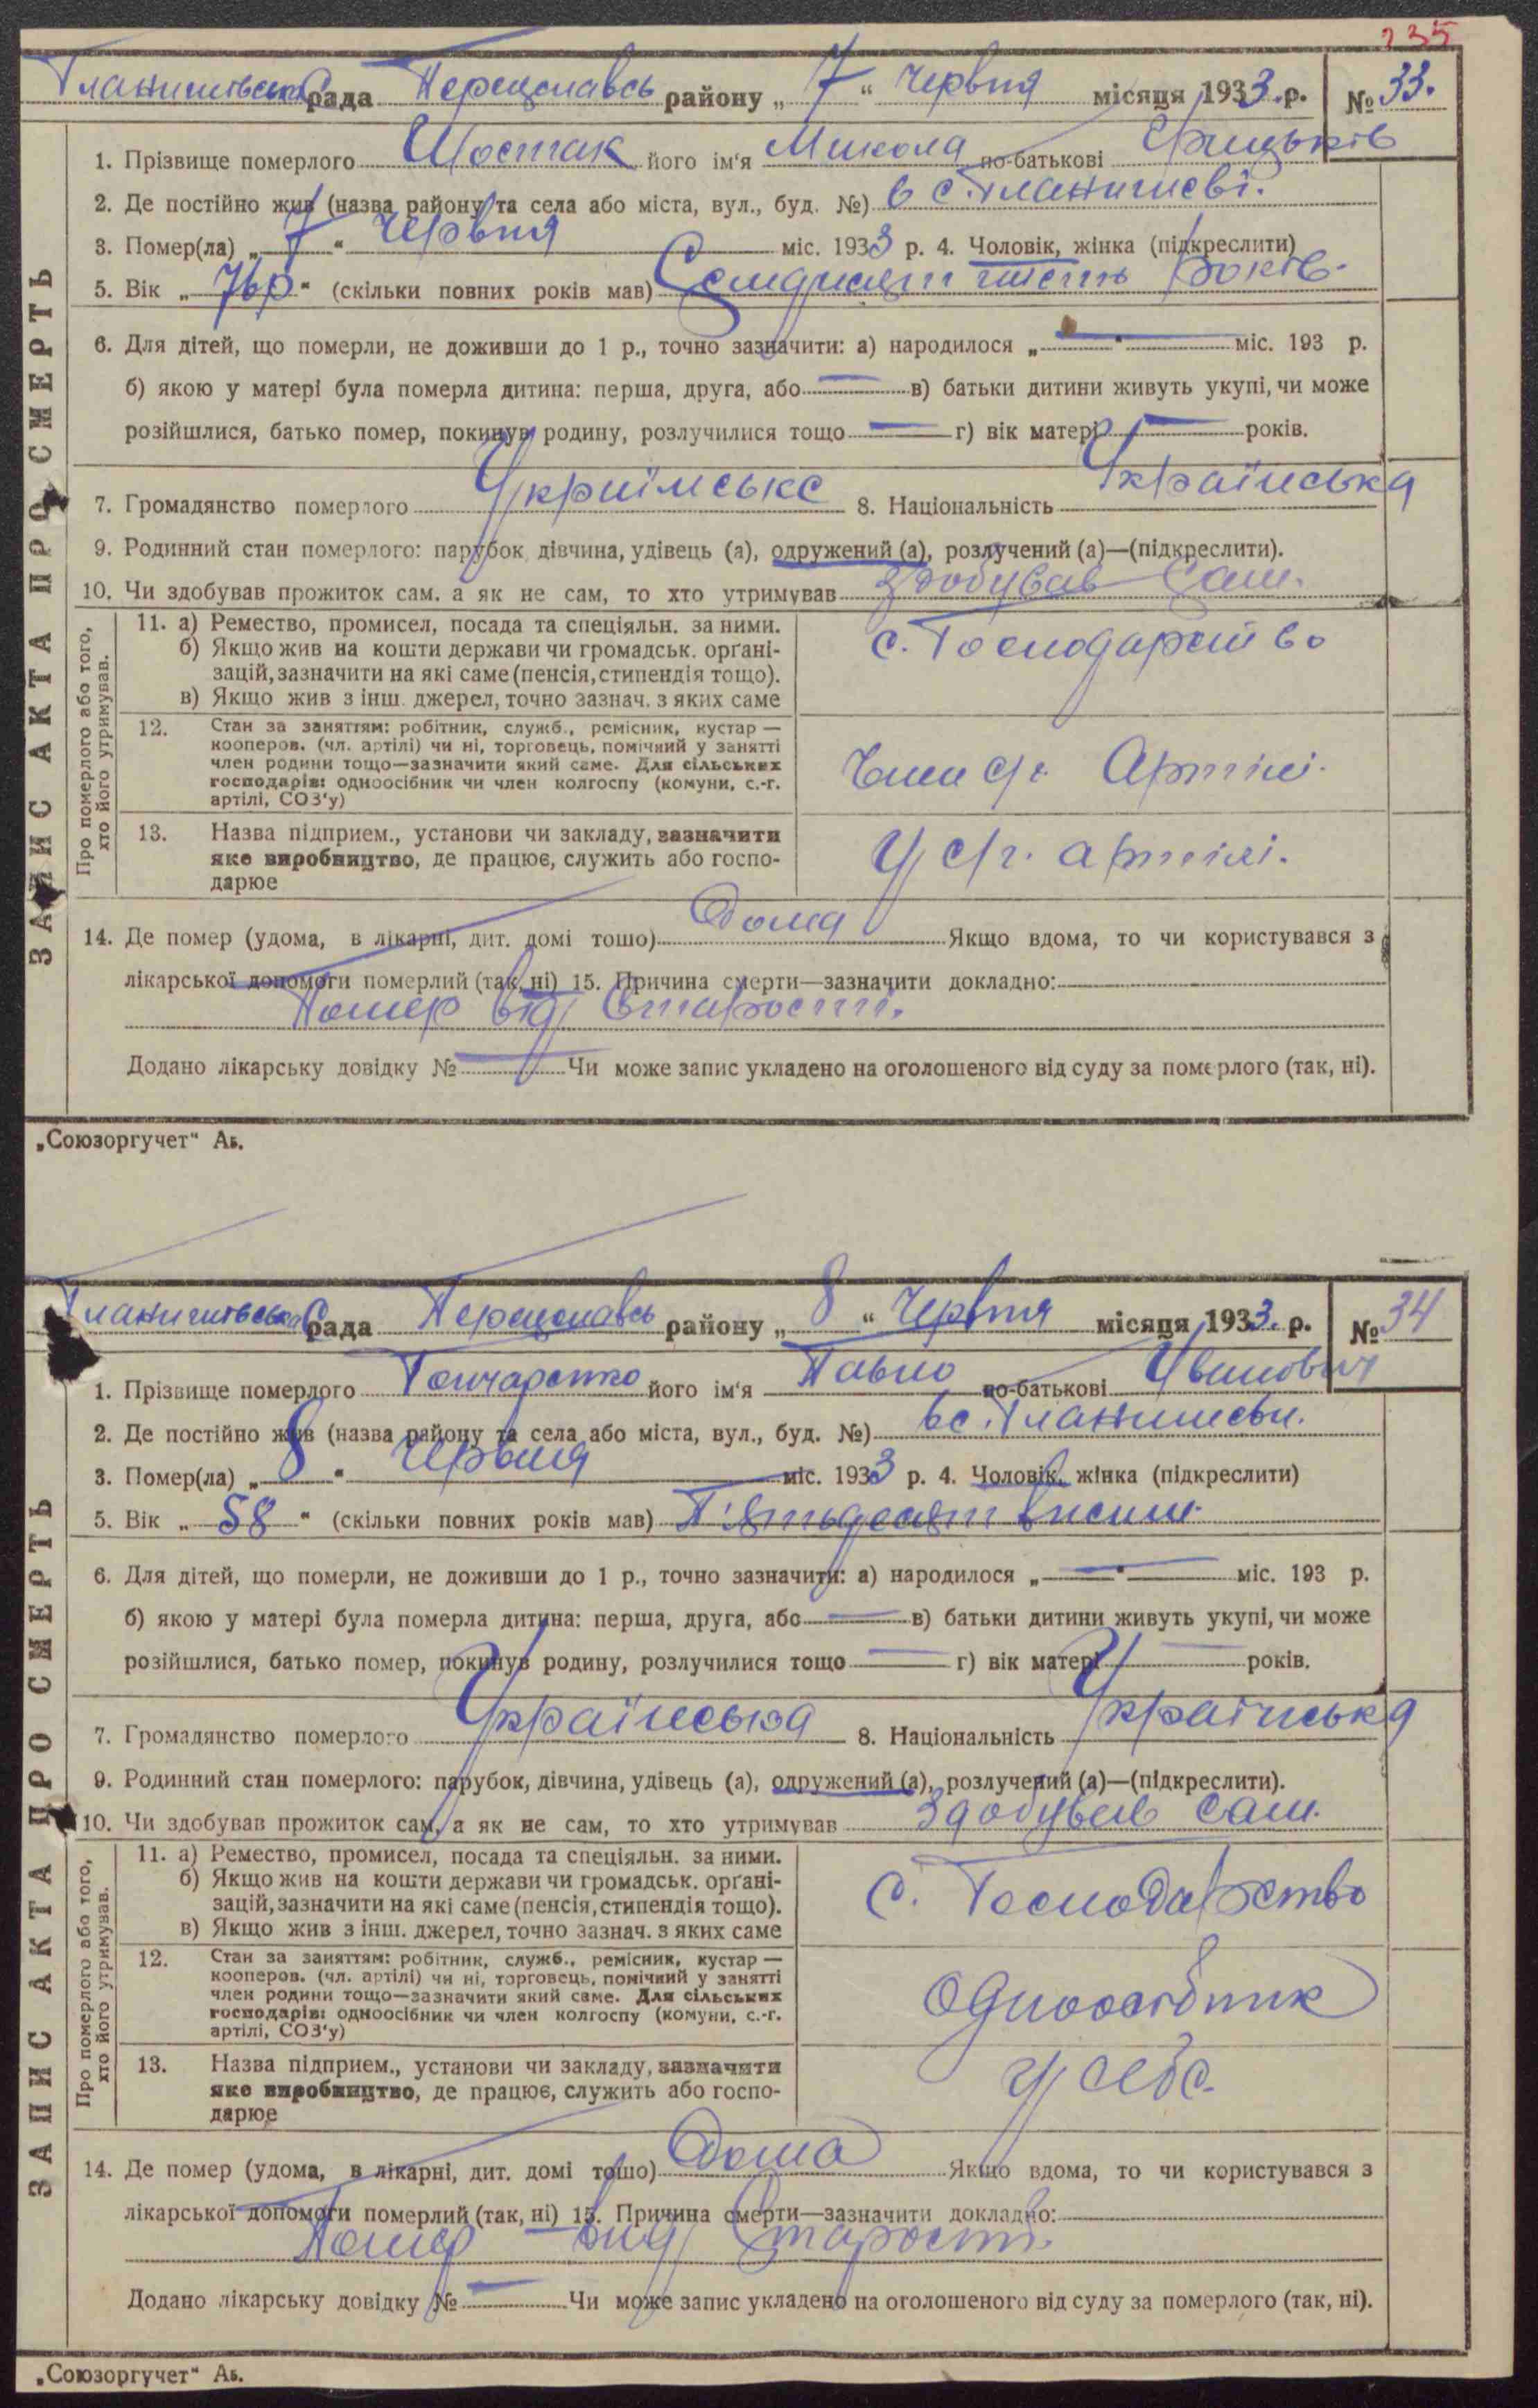 235
Гланишівська рада Переяславсь району „ 7 “ Червня місяця 1933 р. № 33.
ЗАПИС АКТА ПРО СМЕРТЬ
1. Прізвище померлого Шостак його ім'я Микола по-батькові Грицьків
2. Де постійно жив (назва району та села або міста, вул., буд. №) в с. Гланишеві.
3. Помер(ла) „ 7 “ Червня міс. 1933 р. 4. Чоловік, жінка (підкреслити)
5. Вік „ 76р “ (скільки повних років мав) Семдисят шисть років.
6. Для дітей, що померли, не доживши до 1 р., точно зазначити: а) народилося „ — “ — міс. 193 р.
б) якою у матері була померла дитина: перша, друга, або — в) батьки дитини живуть укупі, чи може
розійшлися, батько помер, покинув родину, розлучилися тощо — г) вік матері — років.
7. Громадянство померлого Українське 8. Національність Українська
9. Родинний стан померлого: парубок, дівчина, удівець (а), одружений (а), розлучений (а)—(підкреслити).
10. Чи здобував прожиток сам, а як не сам, то хто утримував здобував сам.
Про померлого або того, хто його утримував.
11. а) Ремество, промисел, посада та спеціяльн. за ними.
б) Якщо жив на кошти держави чи громадськ. орґані-
зацій, зазначити на які саме (пенсія, стипендія тощо).
в) Якщо жив з інш. джерел, точно зазнач. з яких саме
с. Господарство
12. Стан за заняттям: робітник, служб., ремісник, кустар —
кооперов. (чл. артілі) чи ні, торговець, помічний у занятті
член родини тощо—зазначити який саме. Для сільських
господарів: одноосібник чи член колгоспу (комуни, с.-г.
артілі, СОЗ'у)
Член с/г. Артілі.
13. Назва підприєм., установи чи закладу, зазначити
яке виробництво, де працює, служить або госпо-
дарює
У с/г. артілі.
14. Де помер (удома, в лікарні, дит. домі тощо) Дома Якщо вдома, то чи користувався з
лікарської допомоги померлий (так, ні) 15. Причина смерти—зазначити докладно:
Помер від старости.
Додано лікарську довідку № — Чи може запис укладено на оголошеного від суду за померлого (так, ні).
„Союзоргучет“ Аз.
Гланишівська рада Переяславсь району „ 8 “ Червня місяця 1933 р. № 34
ЗАПИС АКТА ПРО СМЕРТЬ
1. Прізвище померлого Гончаренко його ім'я Павло по-батькові Іванович
2. Де постійно жив (назва району та села або міста, вул., буд. №) в с. Гланишеви.
3. Помер(ла) „ 8 “ Червня міс. 1933 р. 4. Чоловік, жінка (підкреслити)
5. Вік „ 58 “ (скільки повних років мав) П'ятьдесят висим.
6. Для дітей, що померли, не доживши до 1 р., точно зазначити: а) народилося „ — “ — міс. 193 р.
б) якою у матері була померла дитина: перша, друга, або — в) батьки дитини живуть укупі, чи може
розійшлися, батько помер, покинув родину, розлучилися тощо — г) вік матері — років.
7. Громадянство померлого Українська 8. Національність Українська
9. Родинний стан померлого: парубок, дівчина, удівець (а), одружений (а), розлучений (а)—(підкреслити).
10. Чи здобував прожиток сам, а як не сам, то хто утримував Здобував сам.
Про померлого або того, хто його утримував.
11. а) Ремество, промисел, посада та спеціяльн. за ними.
б) Якщо жив на кошти держави чи громадськ. орґані-
зацій, зазначити на які саме (пенсія, стипендія тощо).
в) Якщо жив з інш. джерел, точно зазнач. з яких саме
С. Господарство
12. Стан за заняттям: робітник, служб., ремісник, кустар —
кооперов. (чл. артілі) чи ні, торговець, помічний у занятті
член родини тощо—зазначити який саме. Для сільських
господарів: одноосібник чи член колгоспу (комуни, с.-г.
артілі, СОЗ'у)
Одноосібник
13. Назва підприєм., установи чи закладу, зазначити
яке виробництво, де працює, служить або госпо-
дарює
У себе.
14. Де помер (удома, в лікарні, дит. домі тощо) Дома Якщо вдома, то чи користувався з
лікарської допомоги померлий (так, ні) 15. Причина смерти—зазначити докладно:
Помер вид старости.
Додано лікарську довідку № — Чи може запис укладено на оголошеного від суду за померлого (так, ні).
„Союзоргучет“ Аз.